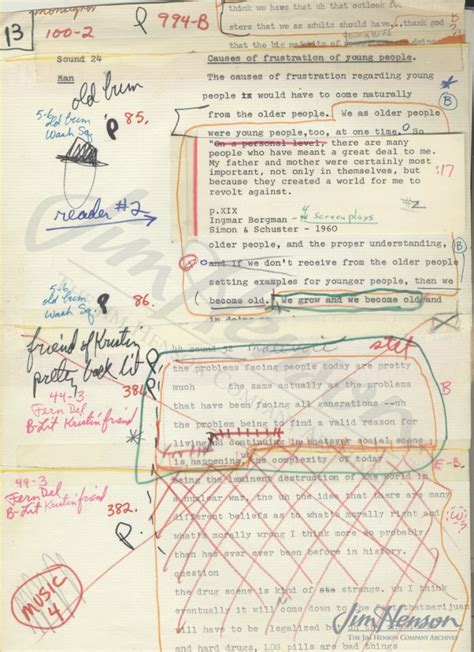 13
100-2
994-B
that as we have uh that outlook to
sters that we as adults should have...thank god
that the big majority of
Sound 24
Causes of frustration of young people.
Man
The causes of frustration regarding young
people ix would have to come naturally
from the older people. We as older people
were young people,too, at one time. So
old bum
5-6
old bum
Wash Sq.
P 85.
"On a personal level, there are many
people who have meant a great deal to me.
My father and mother were certainly most
important, not only in themselves, but
because they created a world for me to
revolt against.
:17
B
#2
reader #2
p.XIX
Ingmar Bergman - 4 screenplays
Simon & Schuster - 1960
older people, and the proper understanding,
and if we don't receive from the older people
setting examples for younger people, then we
become old. We grow and we become old and
in doing so
5-6
old bum
Wash Sq.
P 86.
friend of Kristin
pretty back lit
stet
the problems facing people today are pretty
much the same actually as the problems
that have been facing all generations --uh
the problem being to find a valid reason for
living and continuing in whatever social scene
is happening. the complexity of today
being the imminent destruction of the world in
a nuclear war, the uh the idea that there are many
different beliefs as to whats morally right and
what's morally wrong I think more so probably
then has ever ever been before in history.
question
the drug scene is kind of strange. uh I think
eventually it will come down to
will have to be legalized
and hard drugs, LDS pills are bad
44-3
Fern Del
B-Lit Kristin friend
381
B
E-B
44-3
Fern Del
B-Lit Kristin friend
382.
P.
MUSIC
4
Jim Henson
THE JIM HENSON COMPANY ARCHIVES